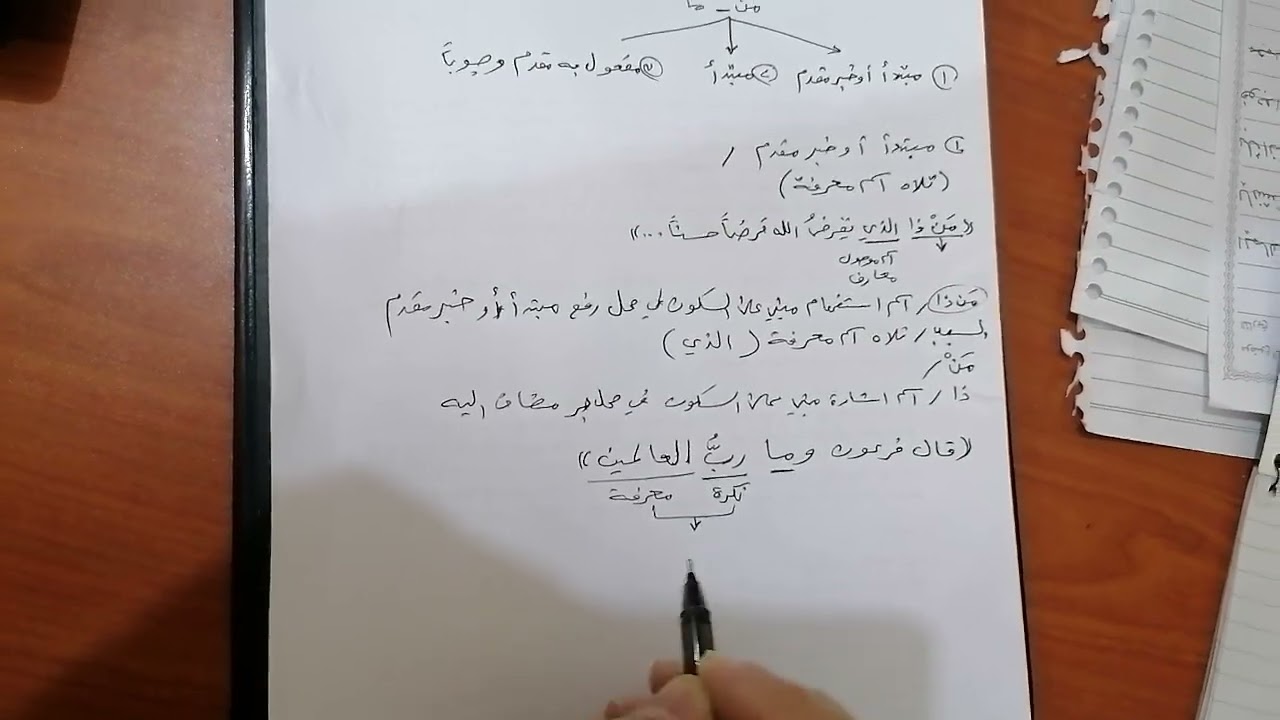 من - ما
① مبتدأ أو خبر مقدم ② مبتدأ ③ مفعول به مقدم وجوباً
① مبتدأ أو خبر مقدم /
(تلاه اسم معرفة)
((مَنْ ذا الذي يقرضُ الله قرضاً حسناً ...))
اسم موصول
معارف
مَن ذا / اسم استفهام مبني على السكون في محل رفع مبتدأ أو خبر مقدم
السبب / تلاه اسم معرفة (الذي)
مَنْ /
ذا / اسم اشارة مبني على السكون في محل جر مضاف اليه
((قال فرعون وما ربُّ العالمين))
نكرة معرفة